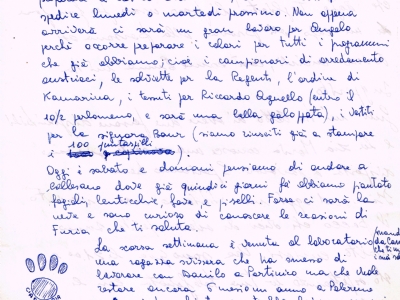 spedire lunedì o martedì prossimo. Non appena
arriverà ci sarà un gran lavoro per Angelo
perchè occorre preparare i colori per tutti i programmi
che già abbiamo; cioè i campionari di arredamento
austriaci, le salviette per la Regenti, l'ordine di
Kamarina, i tessuti per Riccardo Agnello (entro il
10/2 perlomeno, e sarà una bella galoppata), i vestiti
per la signora Baur (siamo riusciti già a stampare
100 puntaspilli
i
).
Oggi è sabato e domani pensiamo di andare a
Collesano dove già quindici giorni fa abbiamo piantato
fagioli, lenticchie, fave, e piselli. Forse ci sarà la
neve e sono curioso di conoscere le reazioni di
Furia che ti saluta.
La scorsa settimana è venuta al laboratorio
una ragazza svizzera che ha smesso di
lavorare con Danilo a Partinico ma che vuole
restare ancora 6 mesi o un anno a Palermo